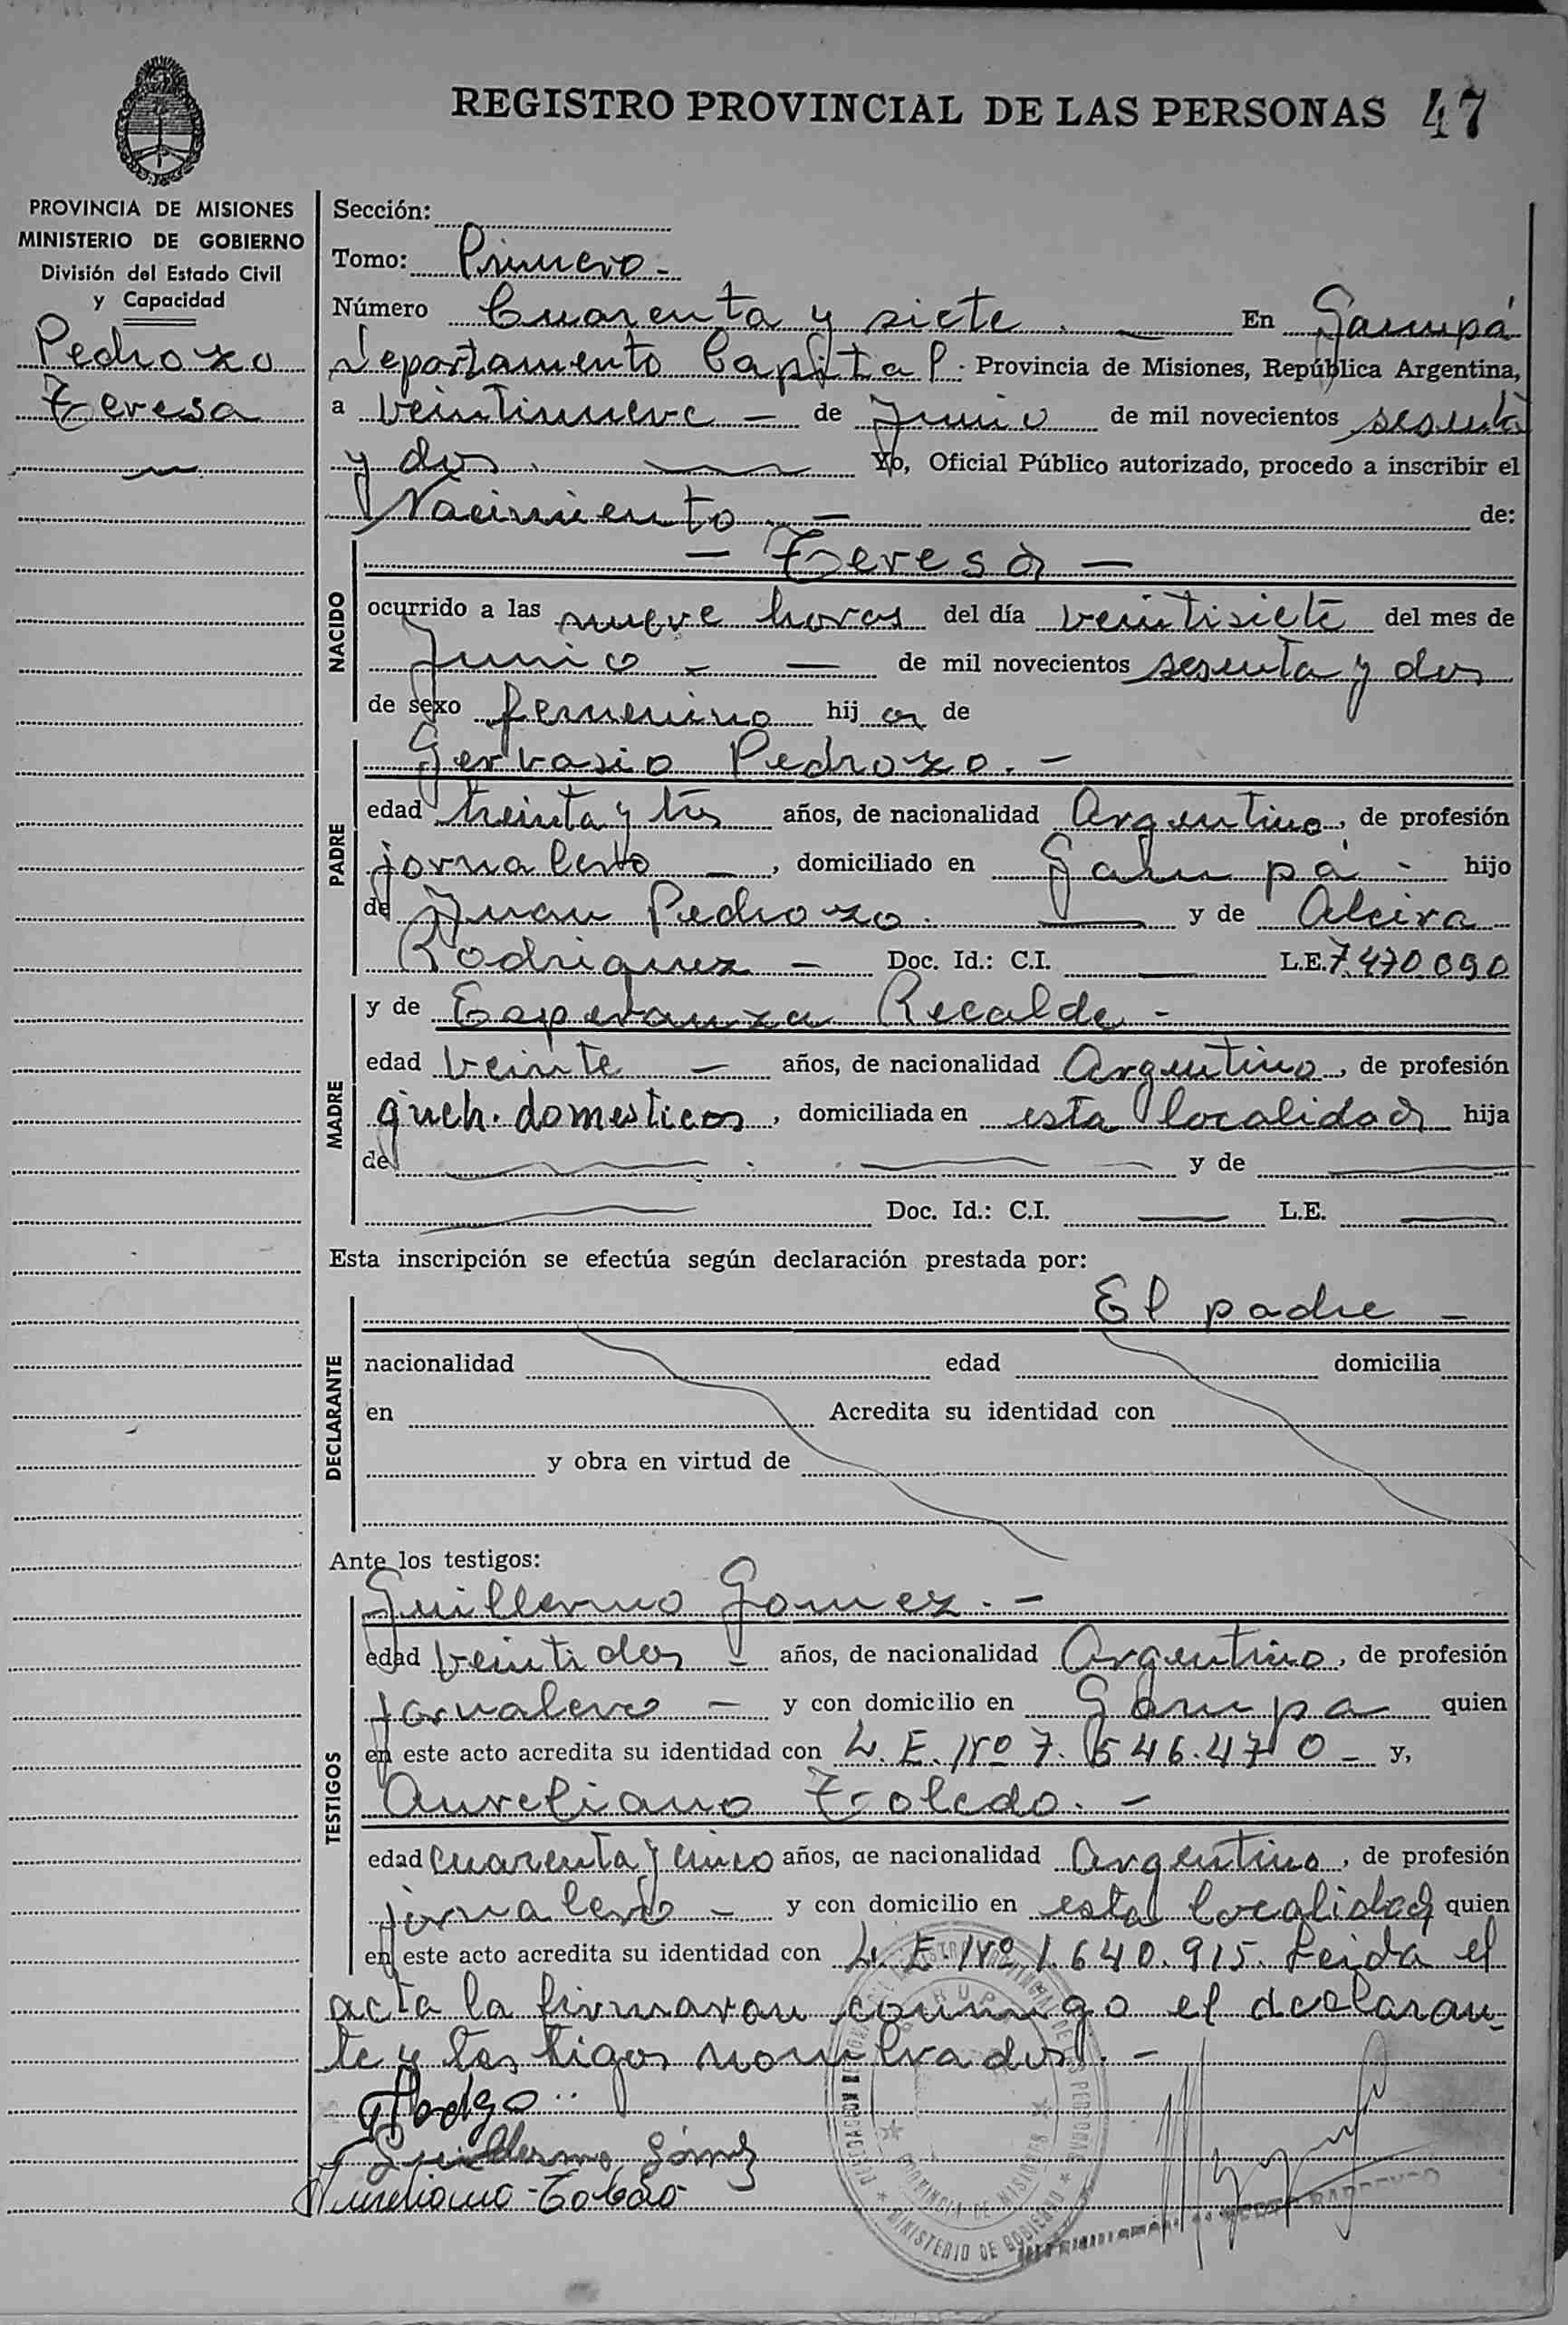 REGISTRO PROVINCIAL DE LAS PERSONAS 47
PROVINCIA DE MISIONES
MINISTERIO DE GOBIERNO
División del Estado Civil
y Capacidad
Pedrozo
Teresa
Sección:
Tomo: Primero.-
Número Cuarenta y siete. - En Garupá
departamento Capital. Provincia de Misiones, República Argentina,
a veintinueve - de Junio de mil novecientos sesenta
y dos. Yo, Oficial Público autorizado, procedo a inscribir el
Nacimiento - de:
- Teresa -
NACIDO
ocurrido a las nueve horas del día veintisiete del mes de
Junio - de mil novecientos sesenta y dos
de sexo femenino hij a de
Gervasio Pedrozo. -
PADRE
edad treinta y tres años, de nacionalidad Argentino, de profesión
jornalero -, domiciliado en Garupá - hijo
de Juan Pedrozo. y de Alcira
Rodriguez - Doc. Id.: C.I. — L.E. 7.470.090
y de Esperanza Recalde -
MADRE
edad veinte - años, de nacionalidad Argentino, de profesión
queh. domesticos, domiciliada en esta localidad hija
de y de
Doc. Id.: C.I. — L.E. —
Esta inscripción se efectúa según declaración prestada por:
El padre -
DECLARANTE
nacionalidad edad domicilia
en Acredita su identidad con
y obra en virtud de
Ante los testigos:
Guillermo Gomez. -
TESTIGOS
edad veintidos - años, de nacionalidad Argentino, de profesión
jornalero - y con domicilio en Garupa quien
en este acto acredita su identidad con L. E. Nº 7.546.470 - y,
Aureliano Toledo. -
edad cuarenta y cinco años, de nacionalidad Argentino, de profesión
jornalero - y con domicilio en esta localidad quien
en este acto acredita su identidad con L. E. Nº 1.640.915. Leida el
acta la firmaran conmigo el declaran-
te y testigos nombrados. -
Guillermo Gómez
Aureliano Toledo
PROVINCIA DE MISIONES
MINISTERIO DE GOBIERNO